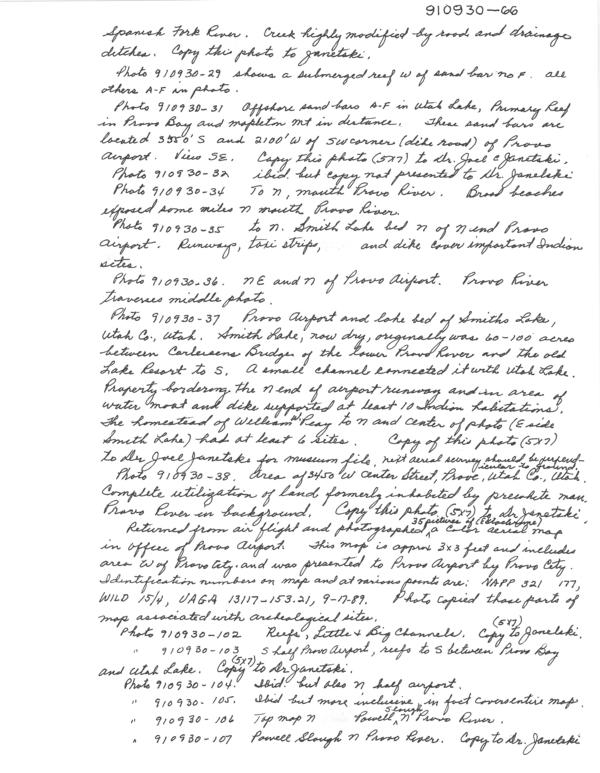 910930-66
Spanish Fork River. Creek highly modified by road and drainage
ditches. Copy this photo to Janetski.
Photo 910930-29 shows a submerged reef W of sand bar no F. all
others A-F in photo.
Photo 910930-31 Offshore sand bars A-F in Utah Lake, Primary Reef
in Provo Bay and Mapleton Mt in distance. These sand bars are
located 3550' S and 2100' W of SW corner (dike road) of Provo
Airport. View SE. Copy this photo (5X7) to Dr. Joel C Janetski.
Photo 910930-32 ibid. but copy not presented to Dr Janetski
Photo 910930-34 To N, mouth Provo River. Broad beaches
exposed some miles N mouth Provo River.
Photo 910930-35 to N. Smith Lake bed N of N end Provo
airport. Runways, taxi strips, and dike cover important Indian
sites.
Photo 910930-36. NE and N of Provo Airport. Provo River
traverses middle photo.
Photo 910930-37 Provo Airport and lake bed of Smiths Lake,
Utah Co., Utah. Smith Lake, now dry, originally was 60-100 acres
between Carleisens Bridge of the lower Provo River and the old
Lake Resort to S. A small channel connected it with Utah Lake.
Property bordering the N end of airport runway and in area of
water moat and dike supported at least 10 Indian habitations.
The homestead of William Peay to N and center of photo (E side
Smith Lake) had at least 6 sites. Copy of this photo (5X7)
to Dr Joel Janetski for museum file, next aerial survey should be perpend-
icular to ground.
Photo 910930-38. Area of 3450 W Center Street, Provo, Utah Co., Utah.
Complete utilization of land formerly inhabited by prewhite man.
Provo River in background. Copy this photo (5X7) to Dr Janetski.
Returned from air flight and photographed 35 pictures of a color aerial map
in office of Provo Airport. This map is approx 3x3 feet and includes
area W of Provo City. and was presented to Provo Airport by Provo City.
Identification numbers on map and at various points are: NAPP 321 177,
WILD 15/4, UAGA 13117-153.21, 9-17-89. Photo copied those parts of
map associated with archeological sites.
Photo 910930-102 Reefs, Little & Big Channels. Copy (5X7) to Janetski.
" 910930-103 S half Provo Airport, reefs to S between Provo Bay
and Utah Lake. Copy (5X7) to Dr Janetski.
Photo 910930-104. Ibid. but also N half airport.
" 910930-105. Ibid but more inclusive, in fact covers entire map.
" 910930-106 Top map N Powell Slough, N Provo River.
" 910930-107 Powell Slough N Provo River. Copy to Dr. Janetski